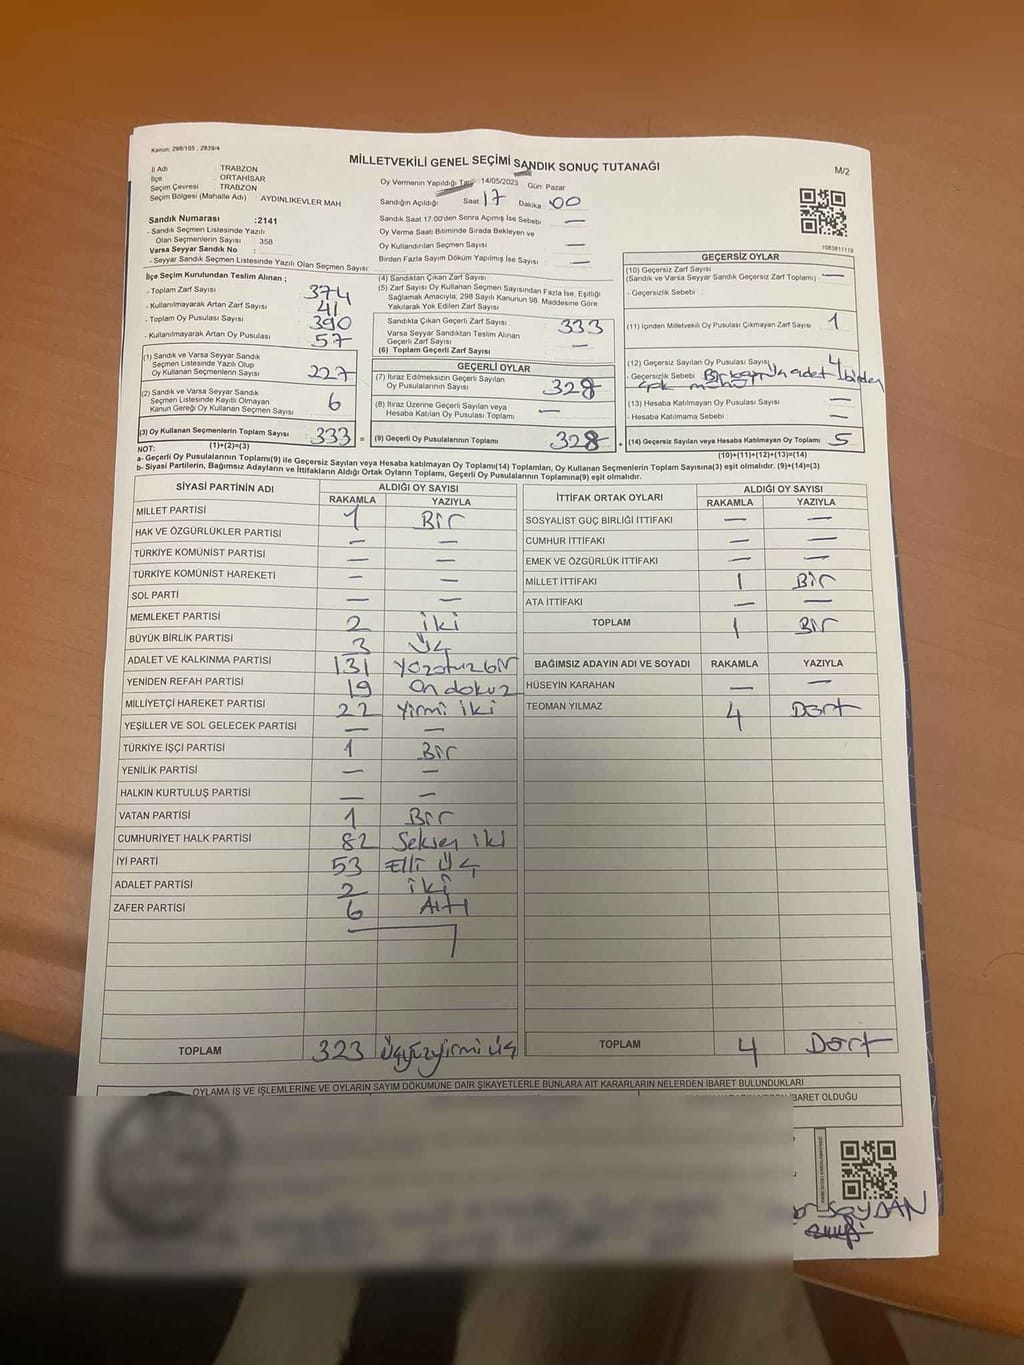 Kanun: 298/105 , 2839/4
MİLLETVEKİLİ GENEL SEÇİMİ SANDIK SONUÇ TUTANAĞI
M/2
İl Adı TRABZON
İlçe ORTAHİSAR
Seçim Çevresi TRABZON
Seçim Bölgesi (Mahalle Adı) AYDINLIKEVLER MAH
Oy Vermenin Yapıldığı Tarih 14/05/2023 Gün: Pazar
Sandığın Açıldığı Saat 17 Dakika 00
Sandık Saat 17:00'den Sonra Açılmış İse Sebebi : —
Oy Verme Saati Bitiminde Sırada Bekleyen ve
Oy Kullandırılan Seçmen Sayısı : —
Birden Fazla Sayım Döküm Yapılmış İse Sayısı : —
1083811119
Sandık Numarası :2141
- Sandık Seçmen Listesinde Yazılı
Olan Seçmenlerin Sayısı 358
Varsa Seyyar Sandık No :
- Seyyar Sandık Seçmen Listesinde Yazılı Olan Seçmen Sayısı:
İlçe Seçim Kurulundan Teslim Alınan ;
- Toplam Zarf Sayısı 374
- Kullanılmayarak Artan Zarf Sayısı 41
- Toplam Oy Pusulası Sayısı 390
- Kullanılmayarak Artan Oy Pusulası 57
(1) Sandık ve Varsa Seyyar Sandık
Seçmen Listesinde Yazılı Olup
Oy Kullanan Seçmenlerin Sayısı 227
(2) Sandık ve Varsa Seyyar Sandık
Seçmen Listesinde Kayıtlı Olmayan
Kanun Gereği Oy Kullanan Seçmen Sayısı 6
(3) Oy Kullanan Seçmenlerin Toplam Sayısı 333 =
(1)+(2)=(3)
(4) Sandıktan Çıkan Zarf Sayısı
(5) Zarf Sayısı Oy Kullanan Seçmen Sayısından Fazla İse, Eşitliği
Sağlamak Amacıyla; 298 Sayılı Kanunun 98. Maddesine Göre
Yakılarak Yok Edilen Zarf Sayısı
Sandıkta Çıkan Geçerli Zarf Sayısı 333
Varsa Seyyar Sandıktan Teslim Alınan
Geçerli Zarf Sayısı —
(6) Toplam Geçerli Zarf Sayısı
GEÇERLİ OYLAR
(7) İtiraz Edilmeksizin Geçerli Sayılan
Oy Pusulalarının Sayısı 328
(8) İtiraz Üzerine Geçerli Sayılan veya
Hesaba Katılan Oy Pusulası Toplamı —
(9) Geçerli Oy Pusulalarının Toplamı 328 +
GEÇERSİZ OYLAR
(10) Geçersiz Zarf Sayısı
(Sandık ve Varsa Seyyar Sandık Geçersiz Zarf Toplamı) —
- Geçersizlik Sebebi :
(11) İçinden Milletvekili Oy Pusulası Çıkmayan Zarf Sayısı 1
(12) Geçersiz Sayılan Oy Pusulası Sayısı 4
- Geçersizlik Sebebi adet birden
çok mühür
(13) Hesaba Katılmayan Oy Pusulası Sayısı —
- Hesaba Katılmama Sebebi —
(14) Geçersiz Sayılan veya Hesaba Katılmayan Oy Toplamı 5
(10)+(11)+(12)+(13)=(14)
NOT:
a- Geçerli Oy Pusulalarının Toplamı(9) ile Geçersiz Sayılan veya Hesaba katılmayan Oy Toplamı(14) Toplamları, Oy Kullanan Seçmenlerin Toplam Sayısına(3) eşit olmalıdır. (9)+(14)=(3)
b- Siyasi Partilerin, Bağımsız Adayların ve İttifakların Aldığı Ortak Oyların Toplamı, Geçerli Oy Pusulalarının Toplamına(9) eşit olmalıdır.
SİYASİ PARTİNİN ADI ALDIĞI OY SAYISI
RAKAMLA YAZIYLA
MİLLET PARTİSİ 1 Bir
HAK VE ÖZGÜRLÜKLER PARTİSİ — —
TÜRKİYE KOMÜNİST PARTİSİ — —
TÜRKİYE KOMÜNİST HAREKETİ — —
SOL PARTİ — —
MEMLEKET PARTİSİ 2 iki
BÜYÜK BİRLİK PARTİSİ 3 Üç
ADALET VE KALKINMA PARTİSİ 131 Yüzotuzbir
YENİDEN REFAH PARTİSİ 19 On dokuz
MİLLİYETÇİ HAREKET PARTİSİ 22 Yirmi iki
YEŞİLLER VE SOL GELECEK PARTİSİ — —
TÜRKİYE İŞÇİ PARTİSİ 1 Bir
YENİLİK PARTİSİ — —
HALKIN KURTULUŞ PARTİSİ — —
VATAN PARTİSİ 1 Bir
CUMHURİYET HALK PARTİSİ 82 Seksen iki
İYİ PARTİ 53 Elli Üç
ADALET PARTİSİ 2 iki
ZAFER PARTİSİ 6 Altı
TOPLAM 323 Üçyüzyirmi üç
İTTİFAK ORTAK OYLARI ALDIĞI OY SAYISI
RAKAMLA YAZIYLA
SOSYALİST GÜÇ BİRLİĞİ İTTİFAKI — —
CUMHUR İTTİFAKI — —
EMEK VE ÖZGÜRLÜK İTTİFAKI — —
MİLLET İTTİFAKI 1 Bir
ATA İTTİFAKI — —
TOPLAM 1 Bir
BAĞIMSIZ ADAYIN ADI VE SOYADI RAKAMLA YAZIYLA
HÜSEYİN KARAHAN — —
TEOMAN YILMAZ 4 Dört
TOPLAM 4 Dört
OYLAMA İŞ VE İŞLEMLERİNE VE OYLARIN SAYIM DÖKÜMÜNE DAİR ŞİKAYETLERLE BUNLARA AİT KARARLARIN NELERDEN İBARET BULUNDUKLARI
İBARET OLDUĞU
SOYDAN